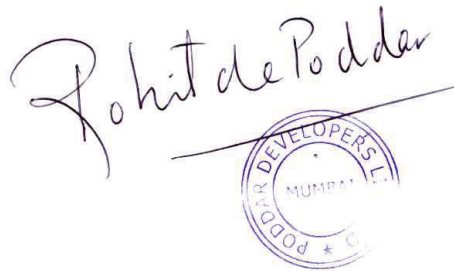 Rohit de Poddar
PODDAR DEVELOPERS L
MUMBAI